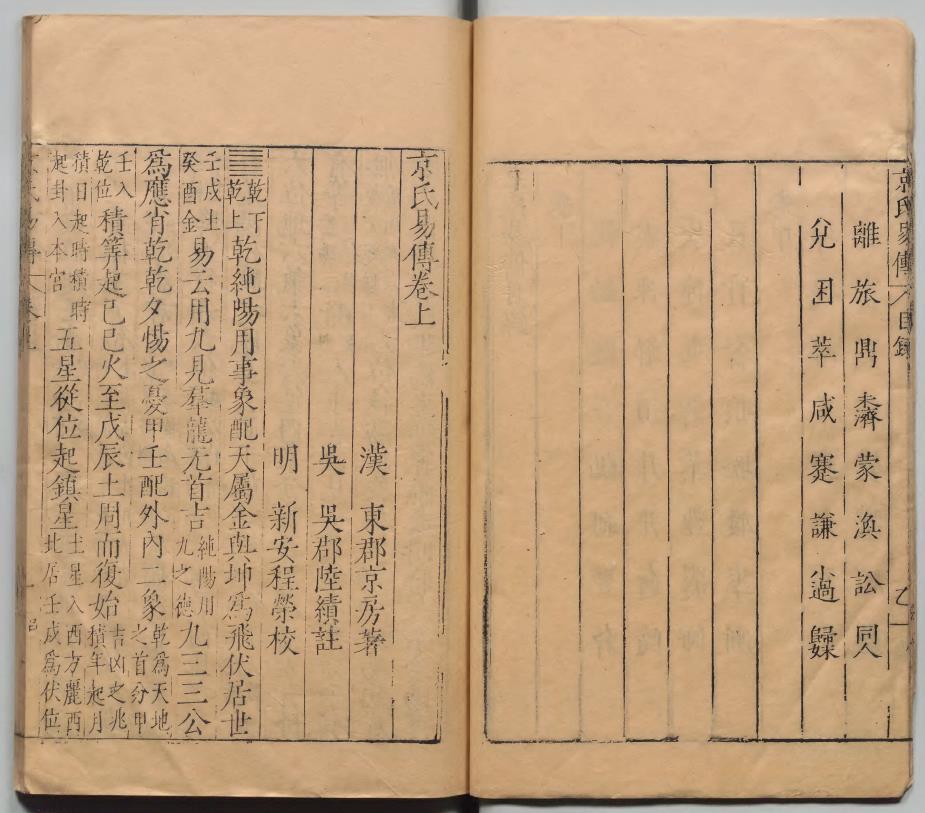 京氏易傳 目錄
離旅鼎未濟蒙渙訟同人
兌困萃咸蹇謙小過歸妹
京氏易傳卷上
漢 東郡京房著
吳 吳郡陸績註
明 新安程榮校
乾下乾上乾純陽用事象配天屬金與坤爲飛伏居世
壬戌土癸酉金易云用九見羣龍无首吉純陽用九之德九三三公
爲應肖乾乾夕惕之憂甲壬配外內二象乾爲天地之首分甲
壬入乾位積筭起己巳火至戊辰土周而復始吉凶之兆積年起月
積日起時積時起卦入本宮五星從位起鎮星土星入西方麗西北居壬戌爲伏位
京氏易傳 卷上